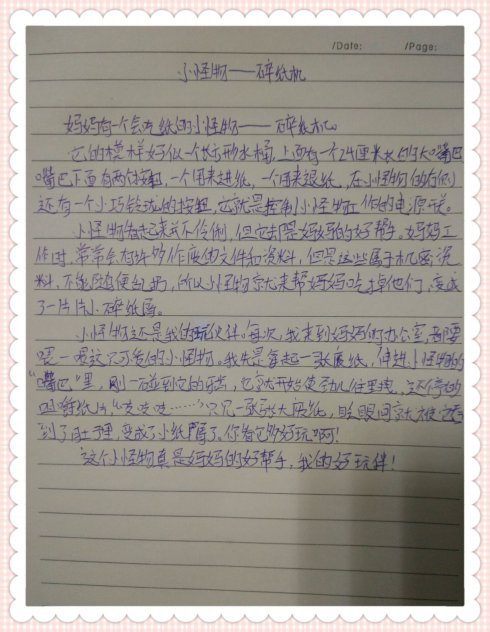 /Date: /Page:
小怪物——碎纸机
妈妈有一个会吃纸的小怪物——碎纸机。
它的模样好似一个长方形水桶,上面有一个24厘米长的大嘴巴
嘴巴下面有两个按钮,一个用来进纸,一个用来退纸,在小怪物的右侧
还有一个小巧玲珑的按钮,它就是控制小怪物工作的电源开关。
小怪物看起来并不伶俐,但它却是妈妈的好帮手。妈妈工
作时,常常会有许多作废的文件和资料,但是这些属于机密资
料,不能随便乱扔,所以小怪物就来帮妈妈吃掉他们,变成
了一片片小碎纸屑。
小怪物还是我的玩伙伴。每次,我来到妈妈的办公室,都要
喂一喂这只可爱的小怪物。我先拿起一张废纸,伸进小怪物的
“嘴巴”里,刚一碰到它的牙齿,它就开始使劲儿往里拽,不停的
咀嚼纸片“吱吱吱……”只见一张张大废纸,眨眼间就被它吞
到了肚子里,变成了小纸屑了。你看它多好玩啊!
这个小怪物真是妈妈的好帮手,我的好玩伴!